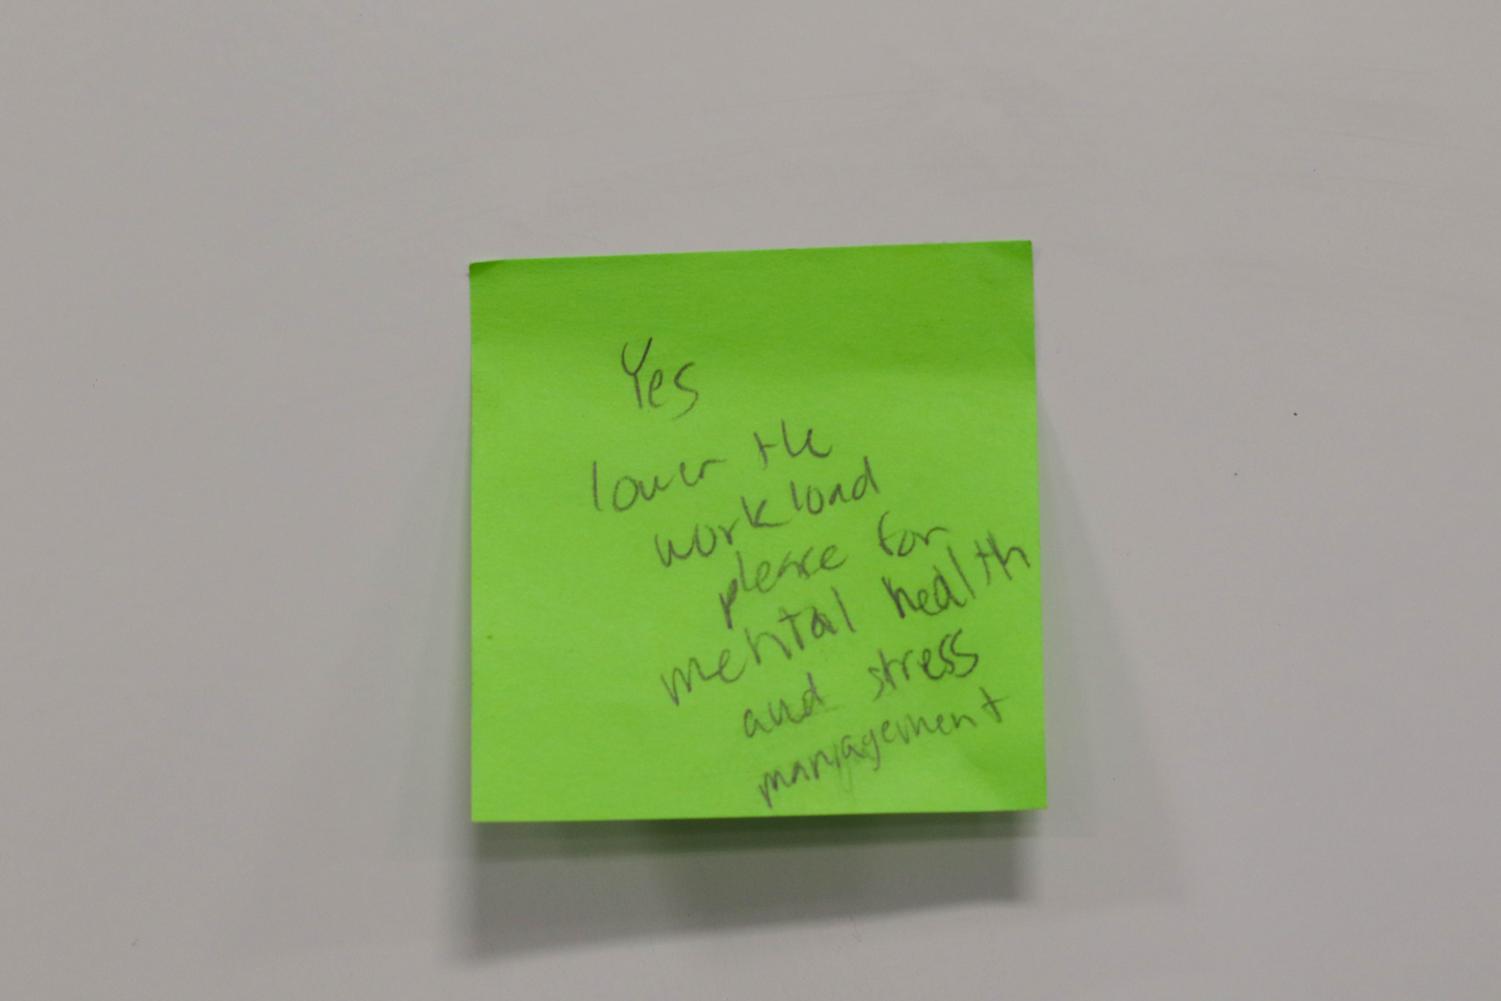 Yes
lower the
workload
please for
mental health
and stress
management